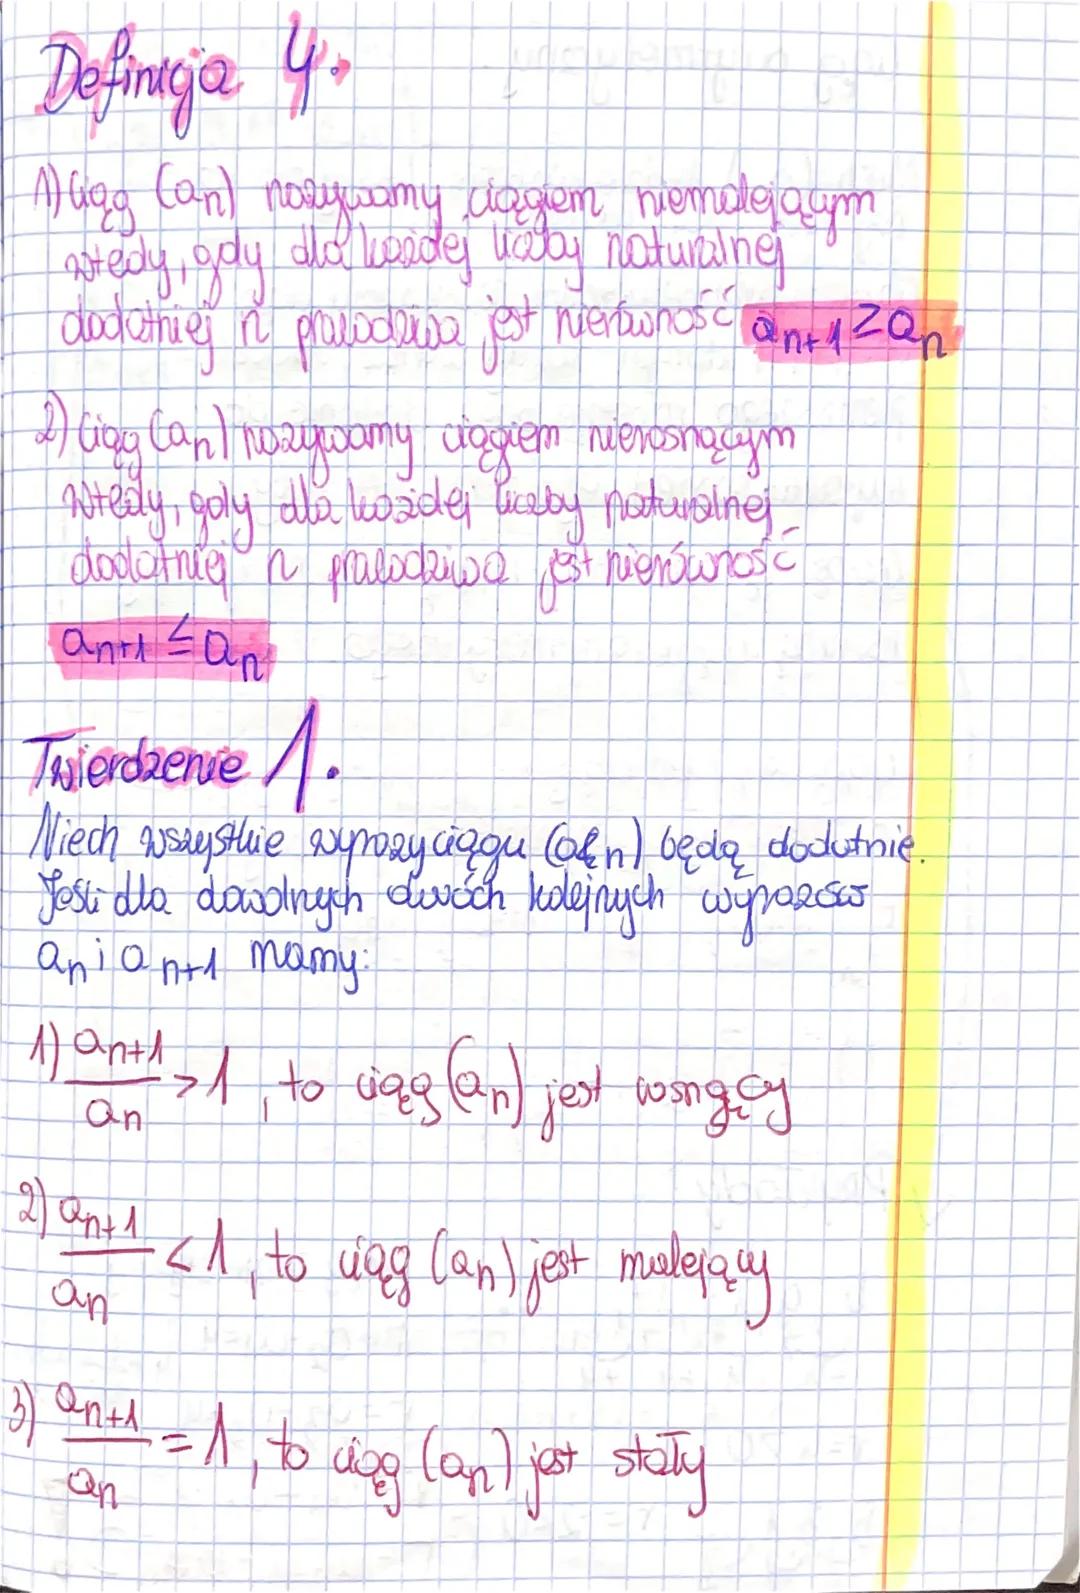 Definicja 4.
1) Ciąg (an) nazywamy ciągiem niemalejącym
wtedy, gdy dla każdej liczby naturalnej
dodatniej n prawdziwa jest nierówność an+1 ≥ an
2) Ciąg (an) nazywamy ciągiem nierosnącym
wtedy, gdy dla każdej liczby naturalnej
dodatniej n prawdziwa jest nierówność
an+1 ≤ an
Twierdzenie 1.
Niech wszystkie wyrazy ciągu (an) będą dodatnie.
Jeśli dla dowolnych dwóch kolejnych wyrazów
an i an+1 mamy:
1) an+1/an > 1, to ciąg (an) jest rosnący
2) an+1/an < 1, to ciąg (an) jest malejący
3) an+1/an = 1, to ciąg (an) jest stały